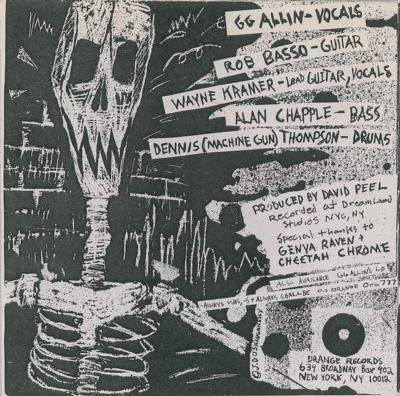 GG ALLIN - VOCALS
ROB BASSO - GUITAR
WAYNE KRAMER - LEAD GUITAR, VOCALS
ALAN CHAPPLE - BASS
DENNIS (MACHINE GUN) THOMPSON - DRUMS
PRODUCED BY DAVID PEEL
Recorded at DreamLand
Studios NYC, NY
Special thanks to
GENYA RAVEN +
CHEETAH CHROME
ALSO AVAILABLE GG ALLIN'S LP
ALWAYS WAS, IS + ALWAYS SHALL BE ON ORANGE ORa 777
ORANGE RECORDS
639 BROADWAY BOX 902
NEW YORK, NY 10012